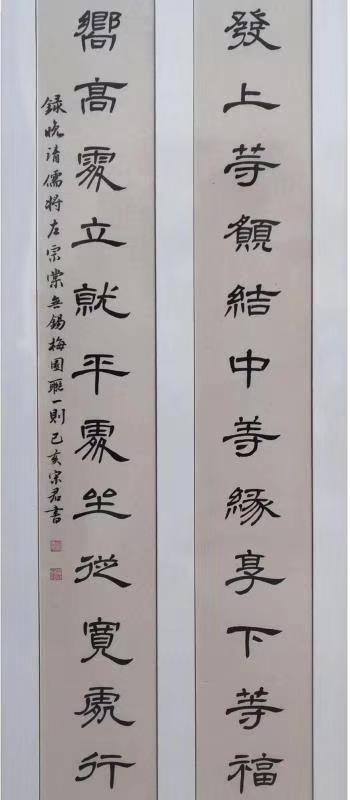 發上等願結中等緣享下等福
嚮高處立就平處坐從寬處行
録晚清儒將左宗棠無錫梅園聯一則己亥宗君書